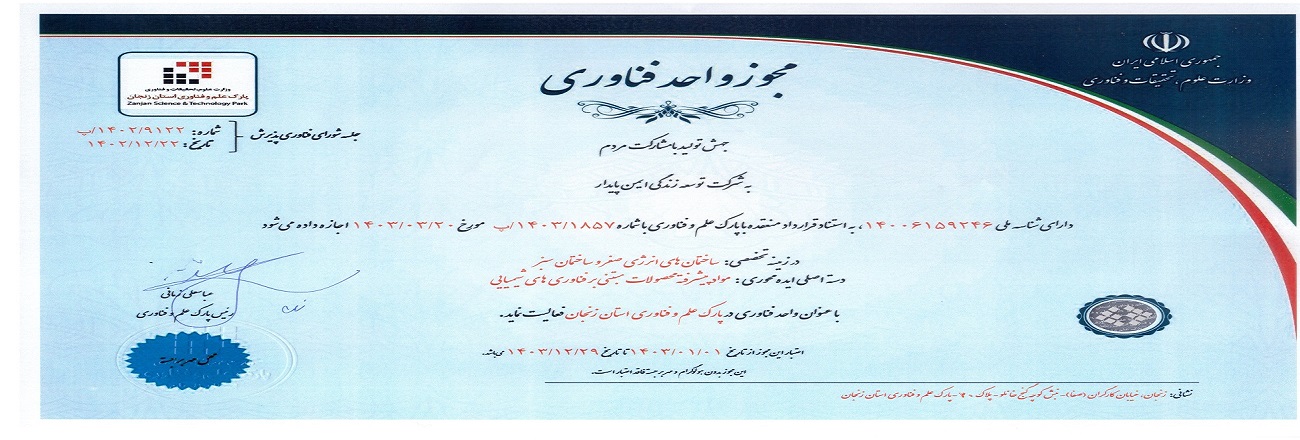 جمهوری اسلامی ایران
وزارت علوم، تحقیقات و فناوری
مجوز واحد فناوری
وزارت علوم، تحقیقات و فناوری
پارک علم و فناوری استان زنجان
Zanjan Science & Technology Park
جلسه شورای فناوری پذیرش
شماره: ۱۴۰۲/۹۱۲۲/پ
تاریخ: ۱۴۰۲/۱۲/۲۲
جهش تولید با مشارکت مردم
به شرکت توسعه زندگی ایمن پایدار
دارای شناسه ملی ۱۴۰۰۶۱۵۹۲۴۶، به استناد قرارداد منعقده با پارک علم و فناوری با شماره ۱۴۰۳/۱۸۵۷/پ مورخ ۱۴۰۳/۰۳/۲۰ اجازه داده می شود
در زمینه تخصصی: ساختمان های انرژی صفر و ساختمان سبز
دسته اصلی ایده محوری: مواد پیشرفته محصولات مبتنی بر فناوری های شیمیایی
با عنوان واحد فناوری در پارک علم و فناوری استان زنجان فعالیت نماید.
عباسعلی زمانی
رئیس پارک علم و فناوری
محل مهر برجسته
اعتبار این مجوز از تاریخ ۱۴۰۳/۰۱/۰۱ تا تاریخ ۱۴۰۳/۱۲/۲۹ می باشد.
این مجوز بدون هولوگرام و مهر برجسته فاقد اعتبار است.
نشانی: زنجان، خیابان کارگران (صفا)- نبش کوچه گنج خانلو- پلاک -پارک علم و فناوری استان زنجان